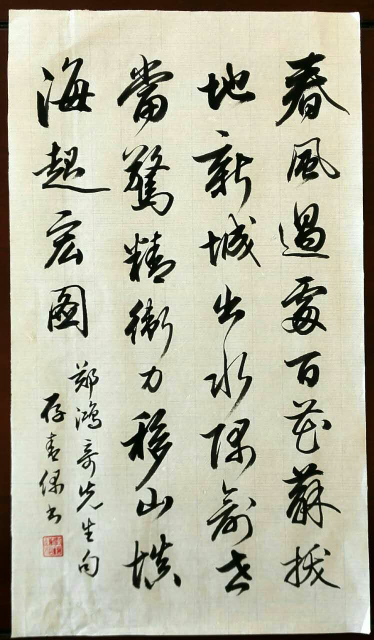 春風過處百花蘇拔
地新城出水隅
當驚精衛力移山填
海起宏圖
鄭鴻先生句
存書